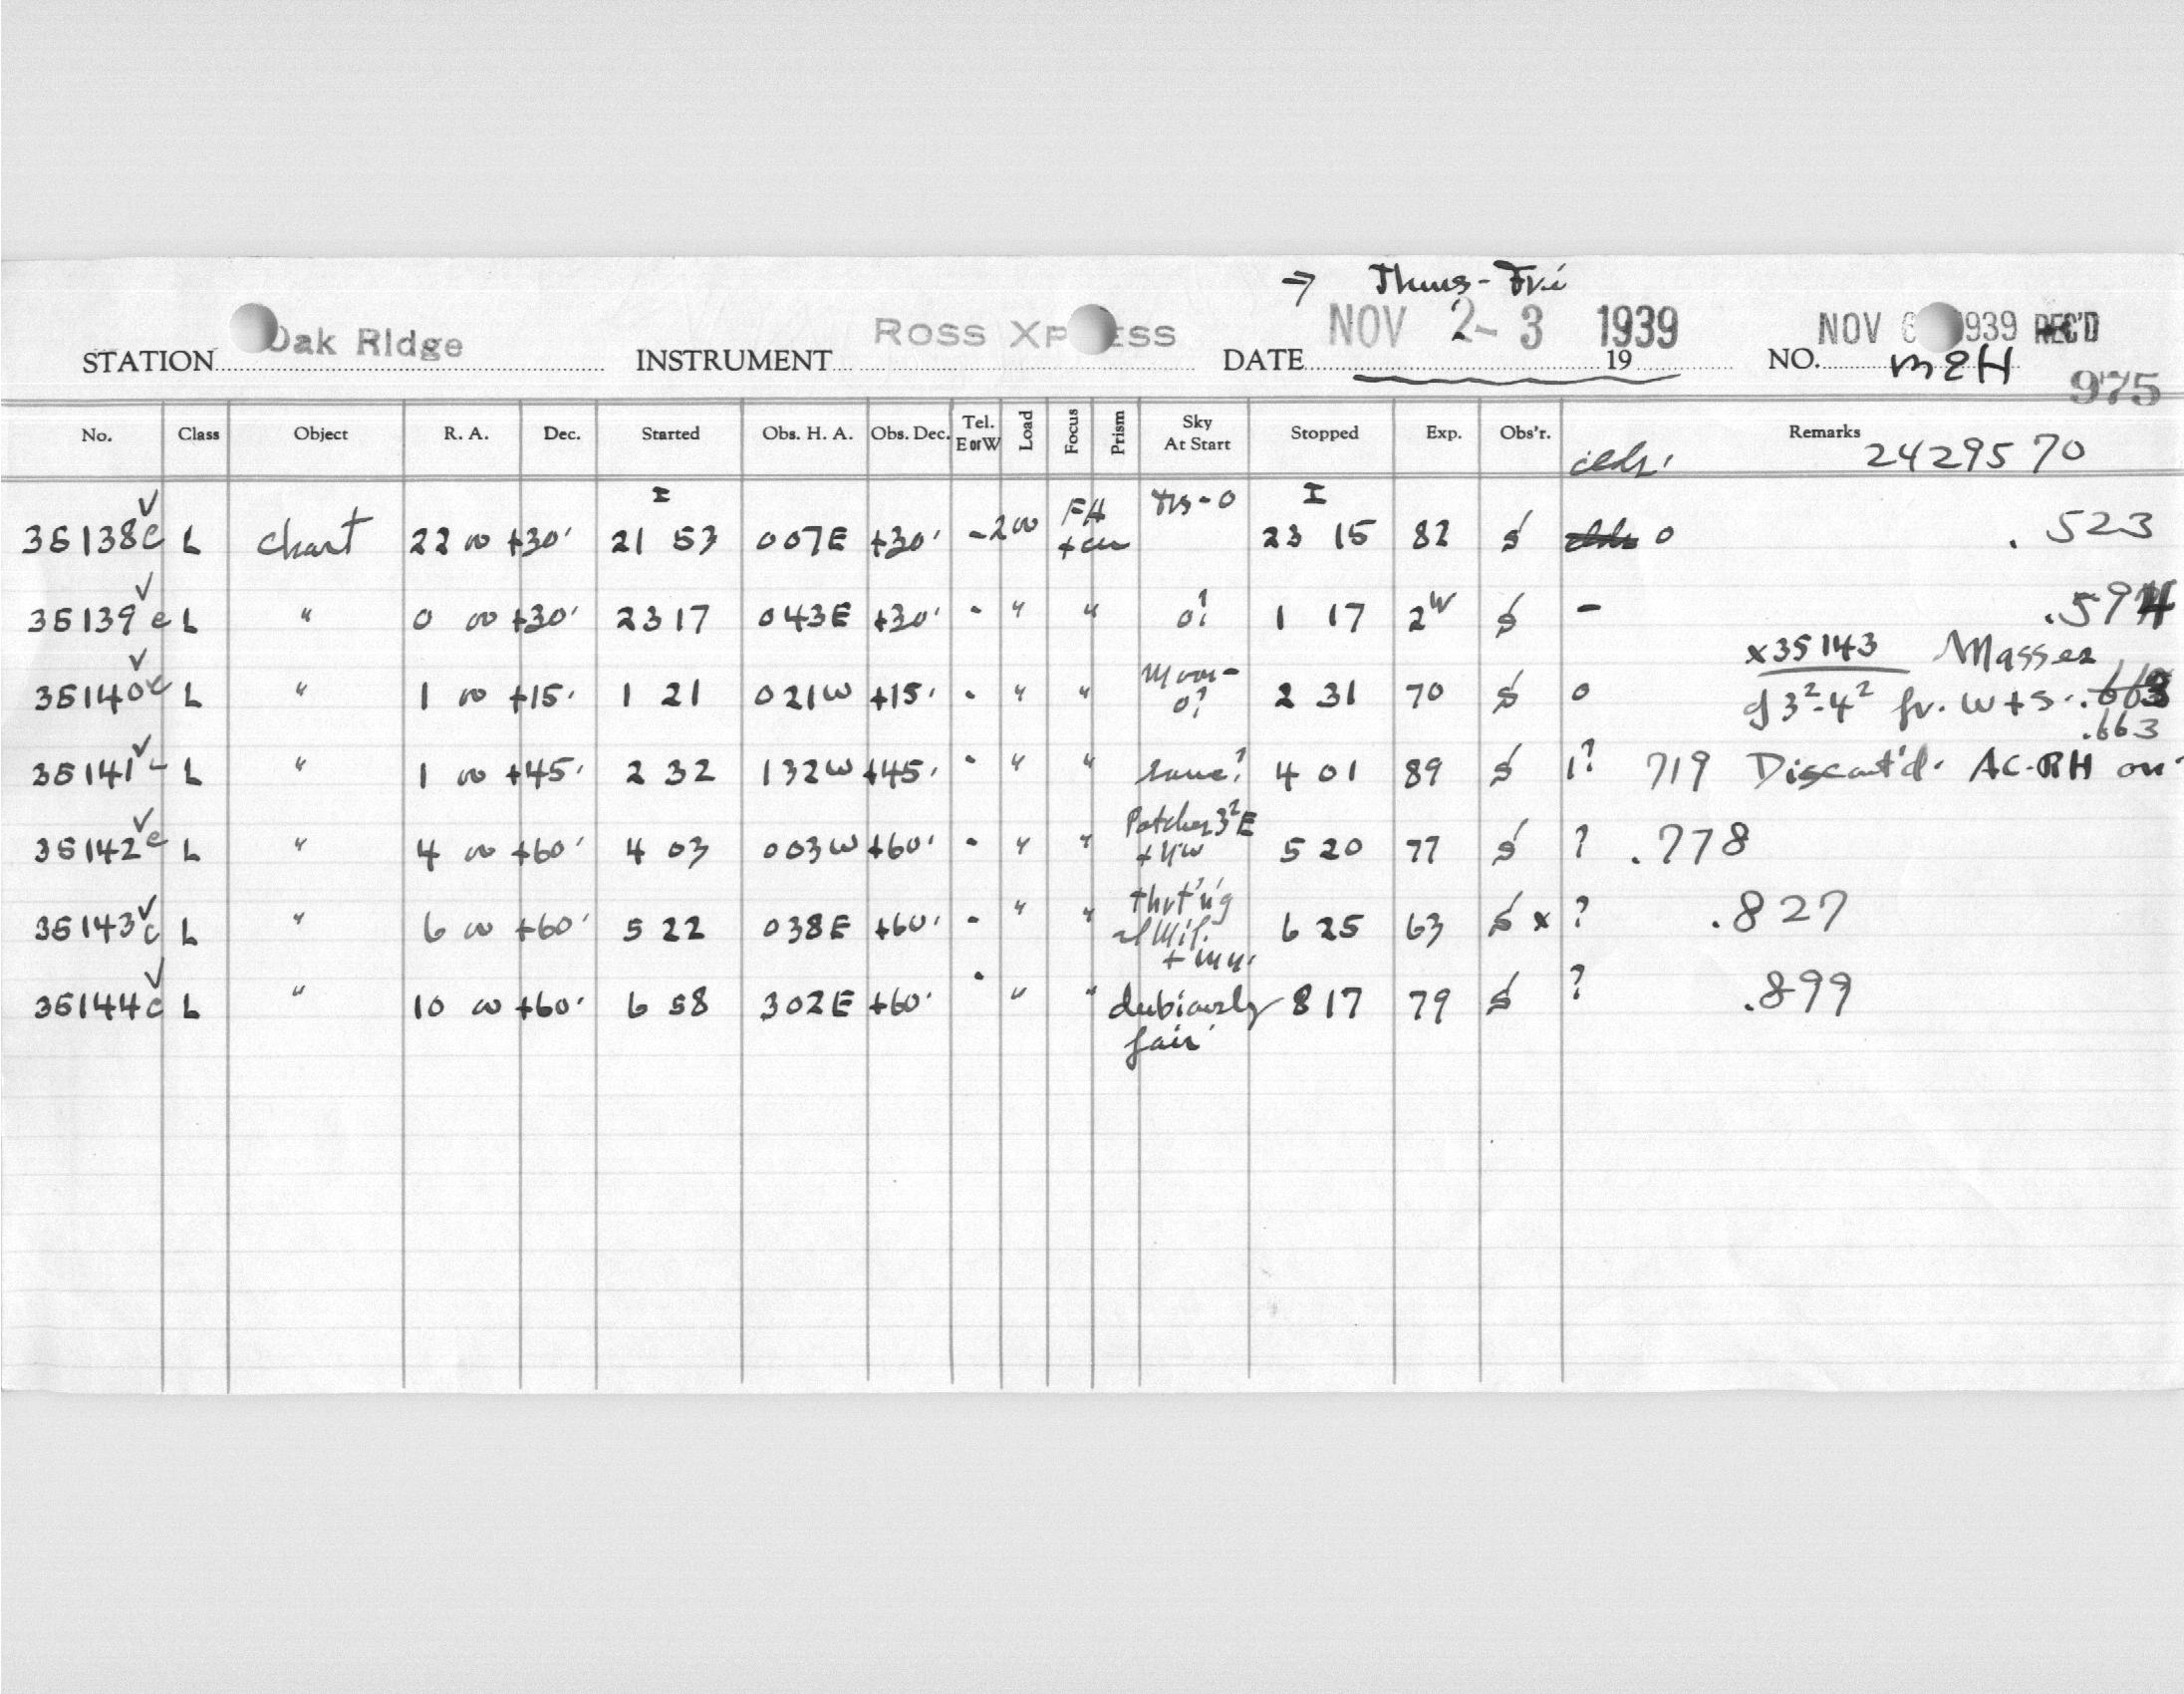 → Thurs-Fri
STATION Oak Ridge INSTRUMENT Ross Xpress DATE NOV 2-3 1939 19 NO. NOV 1939 REC'D
975
No. Class Object R. A. Dec. Started Obs. H. A. Obs. Dec. Tel. E or W Load Focus Prism Sky At Start Stopped Exp. Obs'r. Remarks
2429570
I I
35138c L chart 22 00 +30' 21 53 007E +30' - 200 FH 23 15 82 0 .523
35139c L " 0 00 +30' 23 17 043E +30' " " 0? 1 17 - .594
x35143 Masses
35140c L " 1 00 +15' 1 21 021W +15' " " Moon- 0? 2 31 70 0 of 3²-4² fr. W + S.
.663
35141 L " 1 00 +45' 2 32 132W +45' " " same? 4 01 89 1? 719 Discont'd. AC-RH on
35142c L " 4 00 +60' 4 03 003W +60' " " Patches 3²E + 4W 5 20 77 ? .778
35143c L " 6 00 +60' 5 22 038E +60' " " 6 25 63 x ? .827
35144c L " 10 00 +60' 6 58 302E +60' " " dubiously fair 8 17 79 ? .899